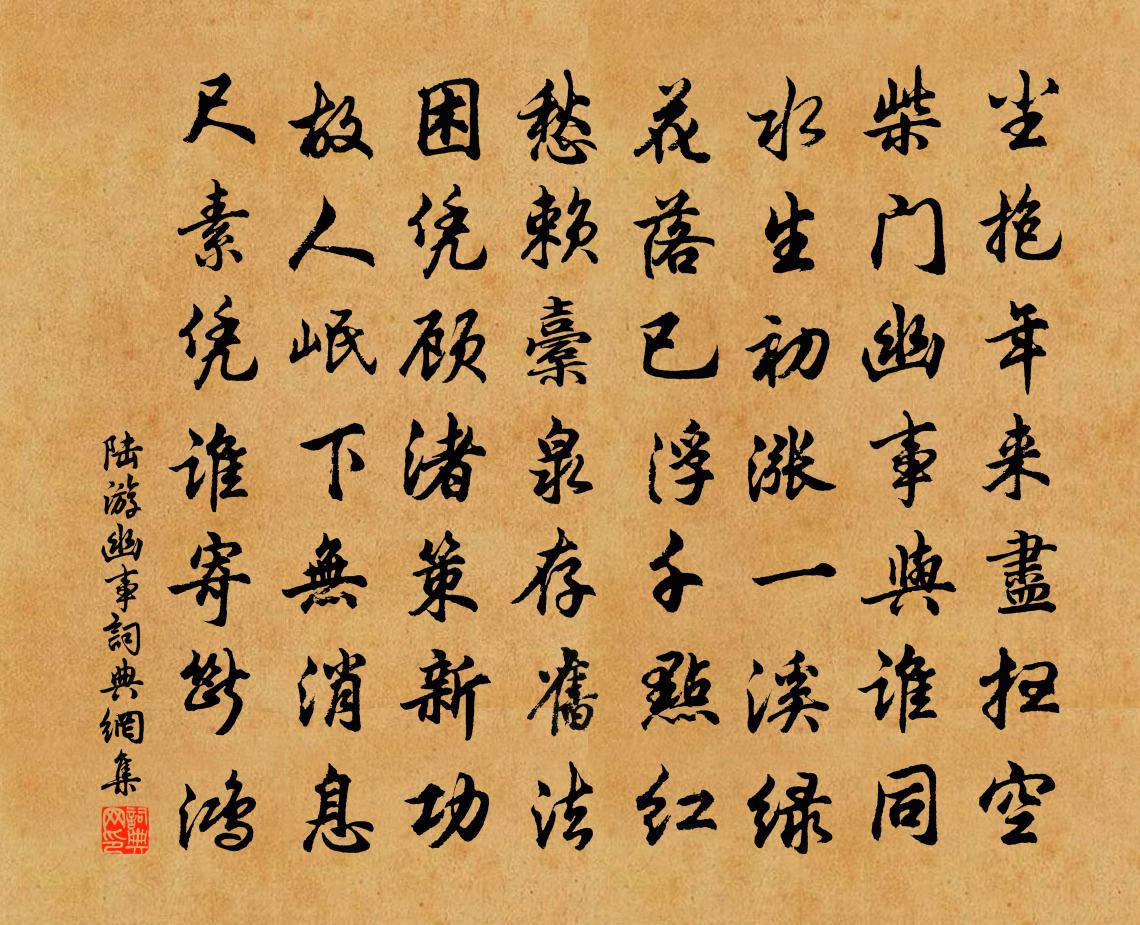 尘抱年来盡扫空
柴门幽事與谁同
水生初涨一溪绿
花落已浮千點红
愁赖橐泉存舊法
困凭顾渚策新功
故人岷下無消息
尺素凭谁寄断鸿
陆游幽事詞典網集
詞典网印